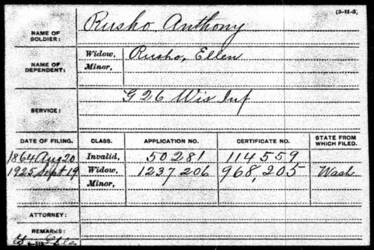 (3-11-3,
NAME OF SOLDIER: Rusho Anthony
NAME OF DEPENDENT: Widow, Rusho, Ellen
Minor,
SERVICE: G 26 Wis Inf
DATE OF FILING. CLASS. APPLICATION NO. CERTIFICATE NO. STATE FROM WHICH FILED.
1864 Aug 20 Invalid, 50281 114559
1925 Sept 19 Widow, 1237206 968,205 Wash
Minor,
ATTORNEY:
REMARKS: